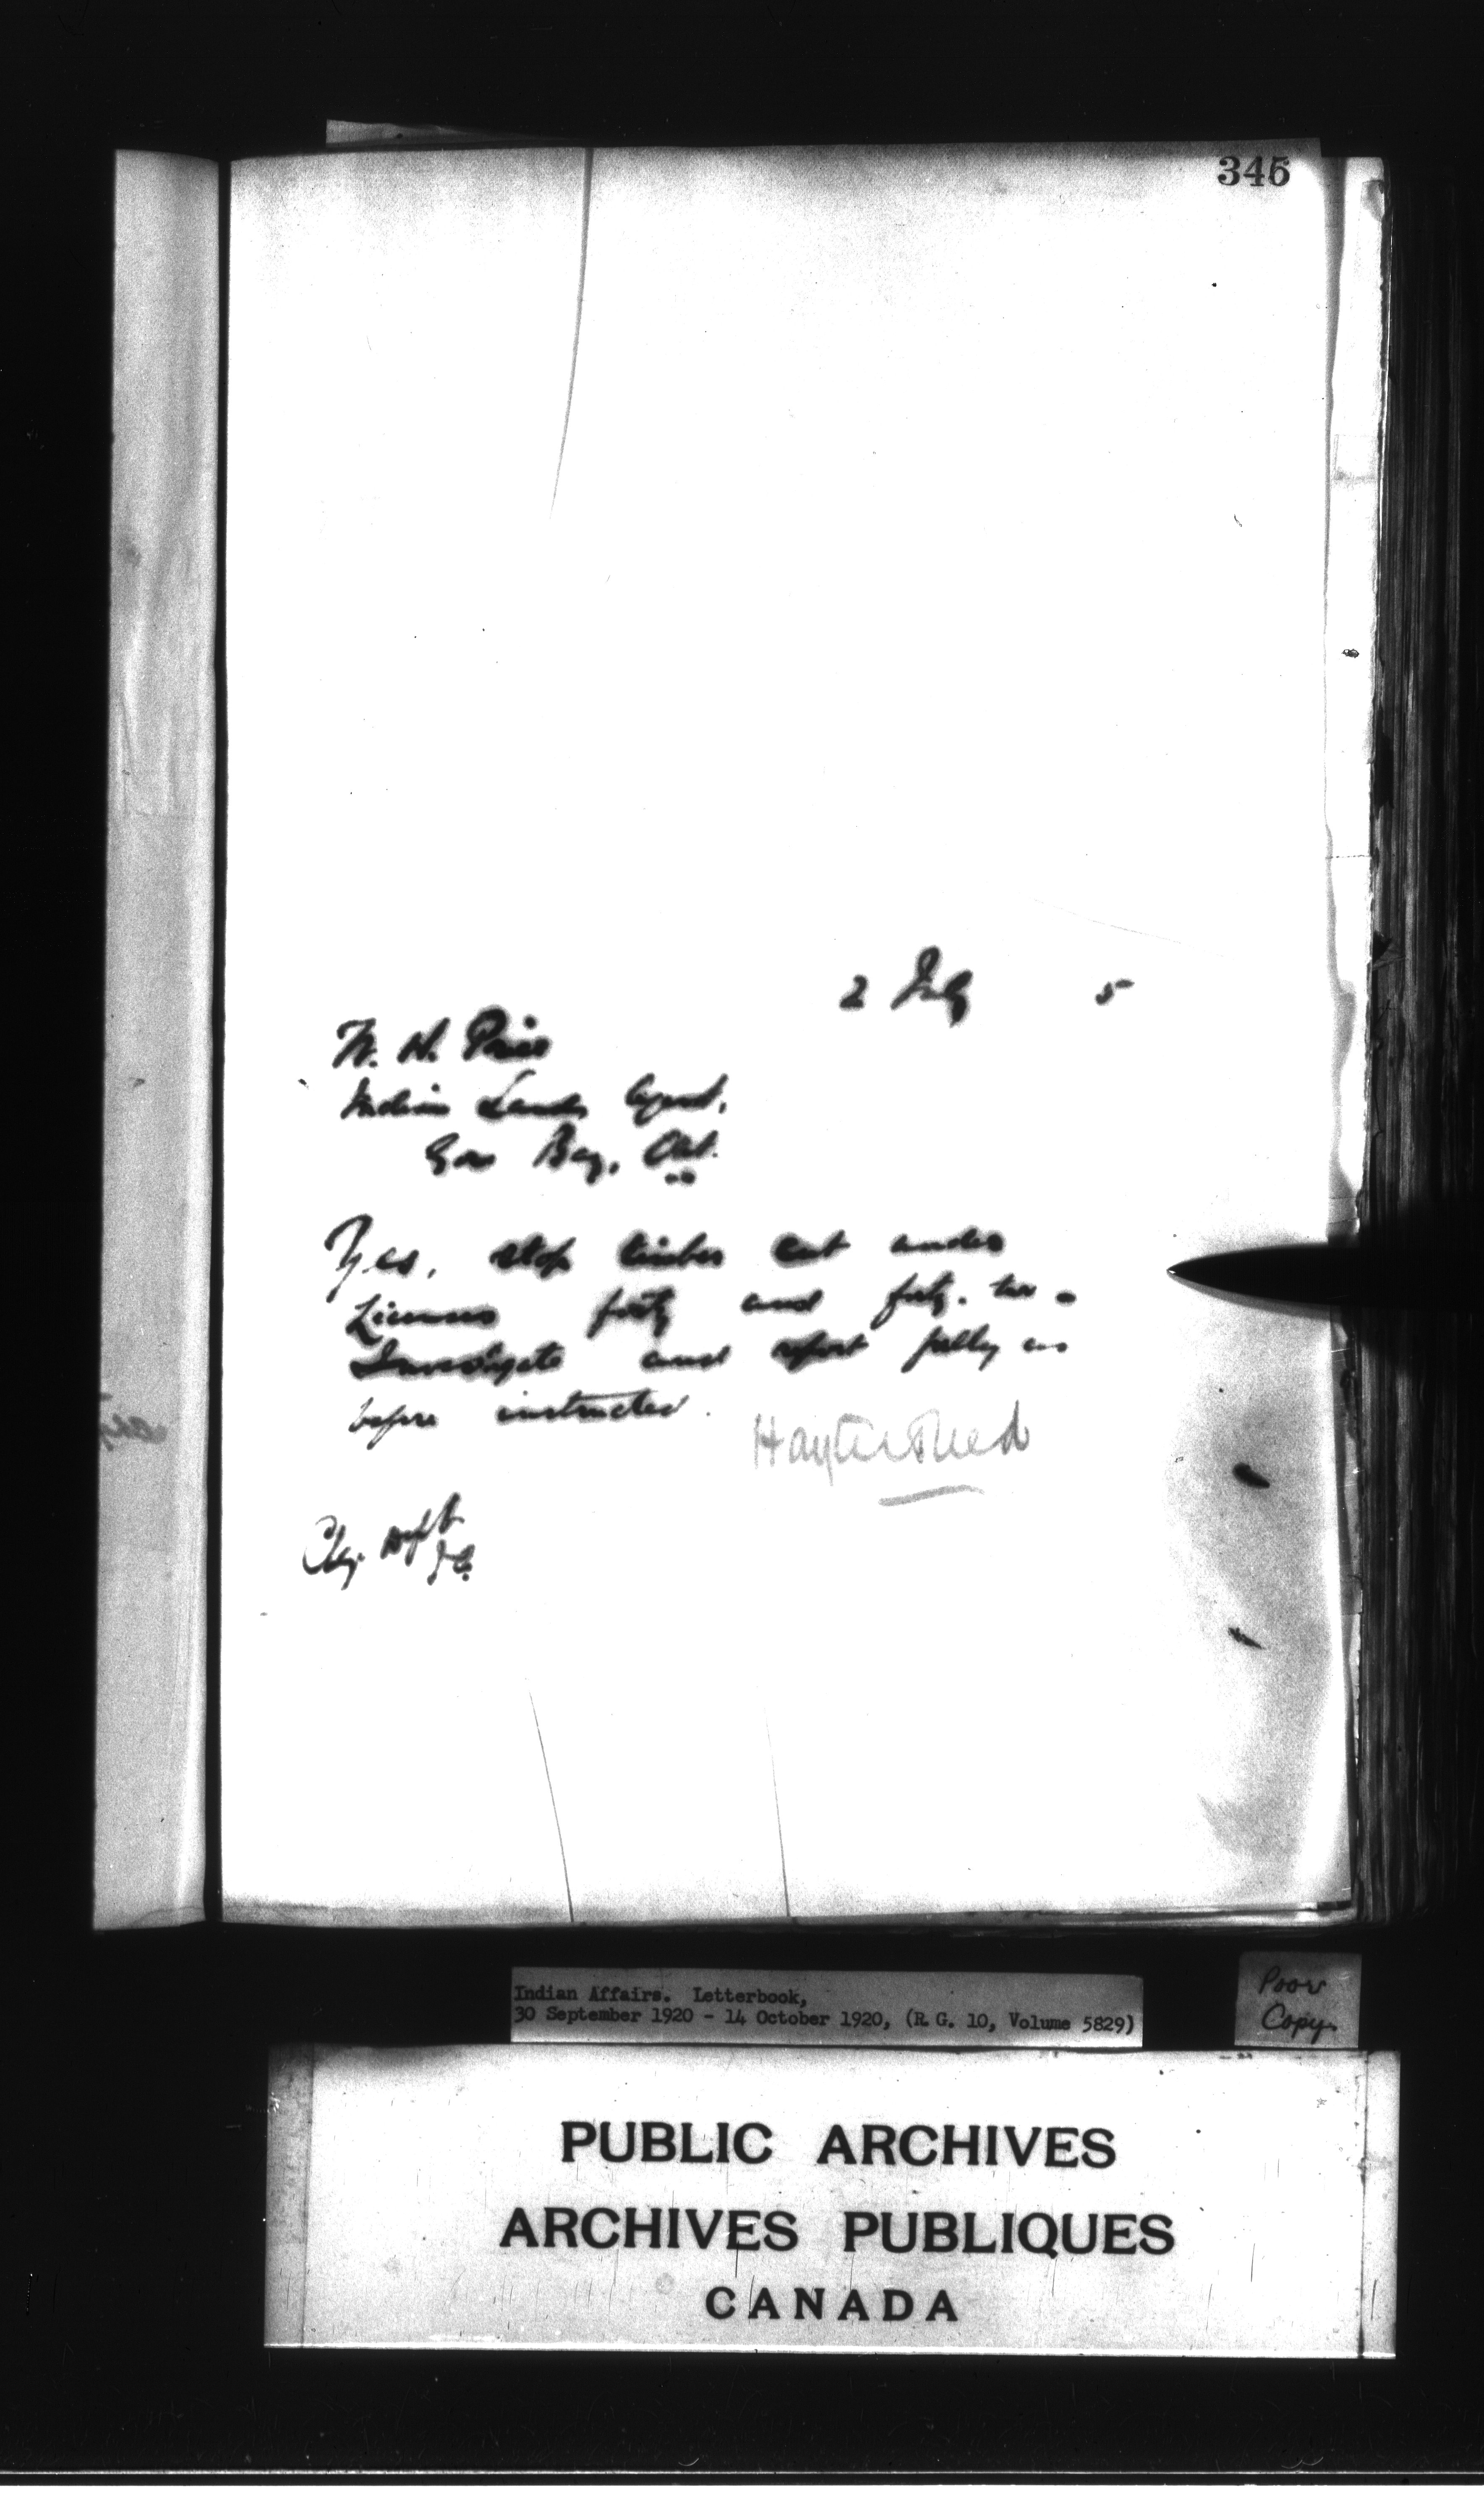 346
2 July 5
W. H. Price
Indian Lands Agent,
Gore Bay, Ont.
Yes, stop timber cut under
Licenses forty and forty-two -
Investigate and report fully as
before instructed.
Hayter Reed
Chg. Dept
I.A.
Indian Affairs. Letterbook,
30 September 1920 - 14 October 1920, (R.G. 10, Volume 5829)
Poor
Copy
PUBLIC ARCHIVES
ARCHIVES PUBLIQUES
CANADA